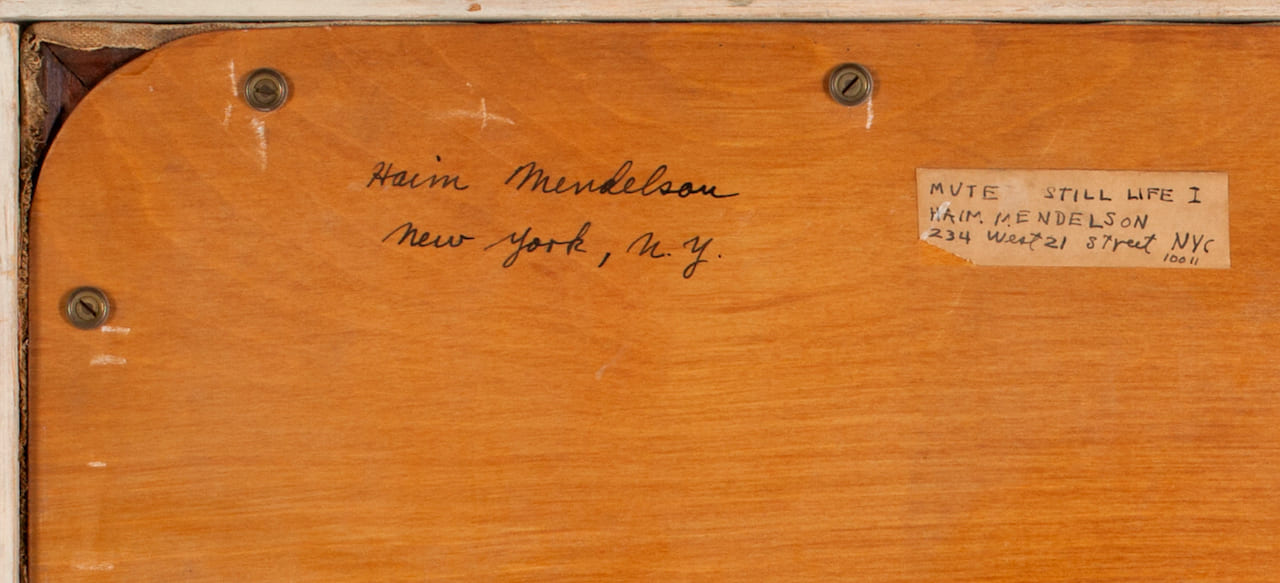 Haim Mendelson
New York, N.Y.
MUTE STILL LIFE I
HAIM MENDELSON
234 West 21 Street NYC
10011